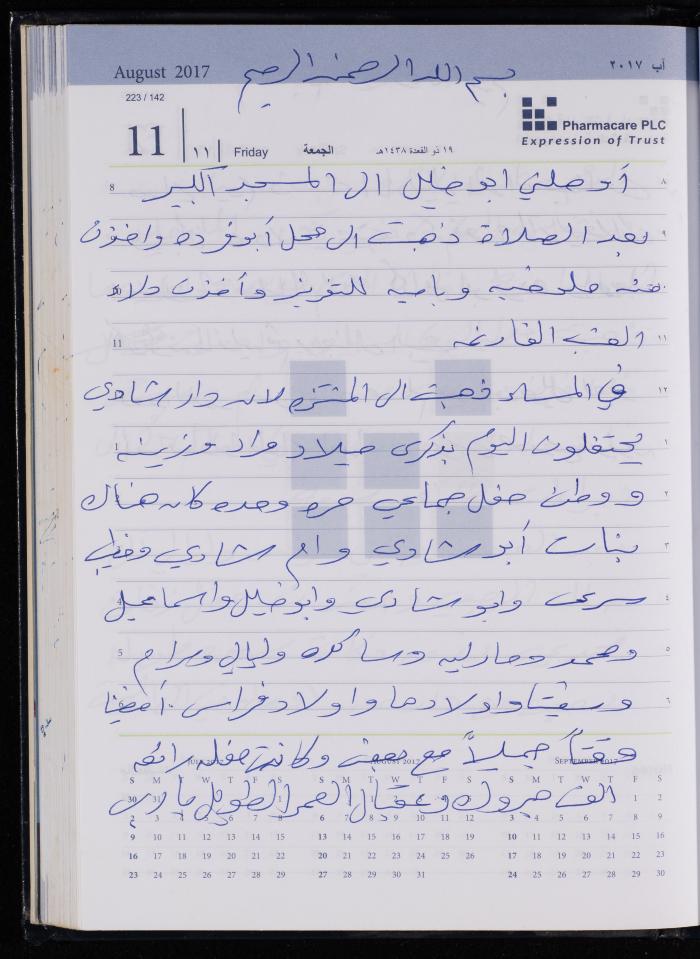 August 2017
آب ٢٠١٧
بسم الله الرحمن الرحيم
223 / 142
11 ١١ Friday الجمعة ١٩ ذو القعدة ١٤٣٨هـ
Pharmacare PLC
Expression of Trust
8 أوصلني ابو خليل الى المسجد الكبير ٨
بعد الصلاة ذهبت الى محل أبو فرده واخذت ٩
منه ملوخيه وباميه للتفريز وأخذت
11 العنب الفارغه ١١
في المساء ذهبت الى المنتزه لان دار شادي ١٢
يحتفلون اليوم بذكرى ميلاد مراد وزينه ١
ووطن حفل جماعي مره وحده كان هناك ٢
بنات أبو شادي وام شادي ٣
4 وابو شادي وابو خليل واسماعيل ٤
5 ومحمد ومادلين وساكنه وليالي ومرام ٥
واولادها واولاد فراس أمضينا ٦
وقتاً جميلاً مع بعض وكانت حفله رائعه
الف مبروك وعقبال العمر الطويل يا رب
JULY 2017 AUGUST 2017 SEPTEMBER 2017
S M T W T F S S M T W T F S S M T W T F S
30 31 1 1 2 3 4 5 1 2
2 3 4 5 6 7 8 6 7 8 9 10 11 12 3 4 5 6 7 8 9
9 10 11 12 13 14 15 13 14 15 16 17 18 19 10 11 12 13 14 15 16
16 17 18 19 20 21 22 20 21 22 23 24 25 26 17 18 19 20 21 22 23
23 24 25 26 27 28 29 27 28 29 30 31 24 25 26 27 28 29 30